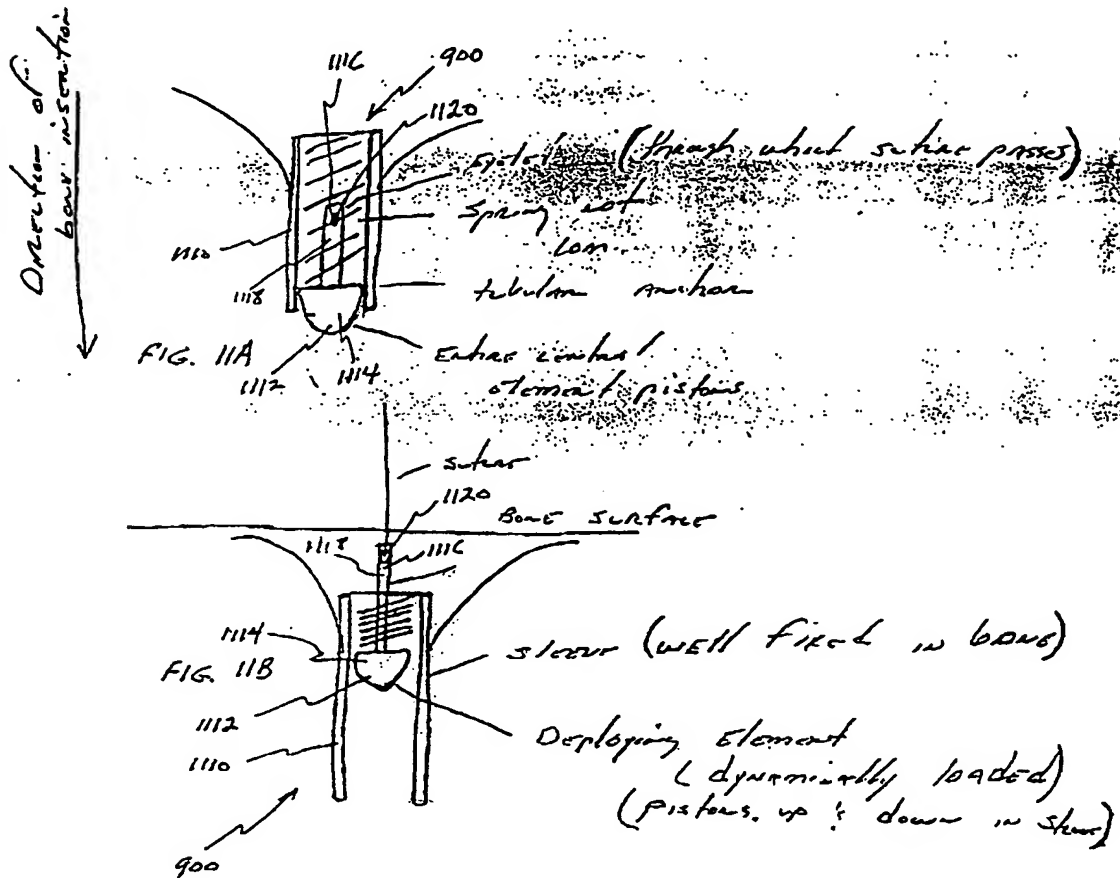 Direction of
bone insertion
1116
900
1120
Eyelet (through which suture passes)
Spring not
1110
1118
tubular anchor
FIG. 11A
1112
1114
Entire central
element pistons
suture
1120
Bone surface
1118
1116
1114
sleeve (well fixed in bone)
FIG. 11B
1112
1110
Deploying Element
(dynamically loaded)
(pistons up & down in sleeve)
900